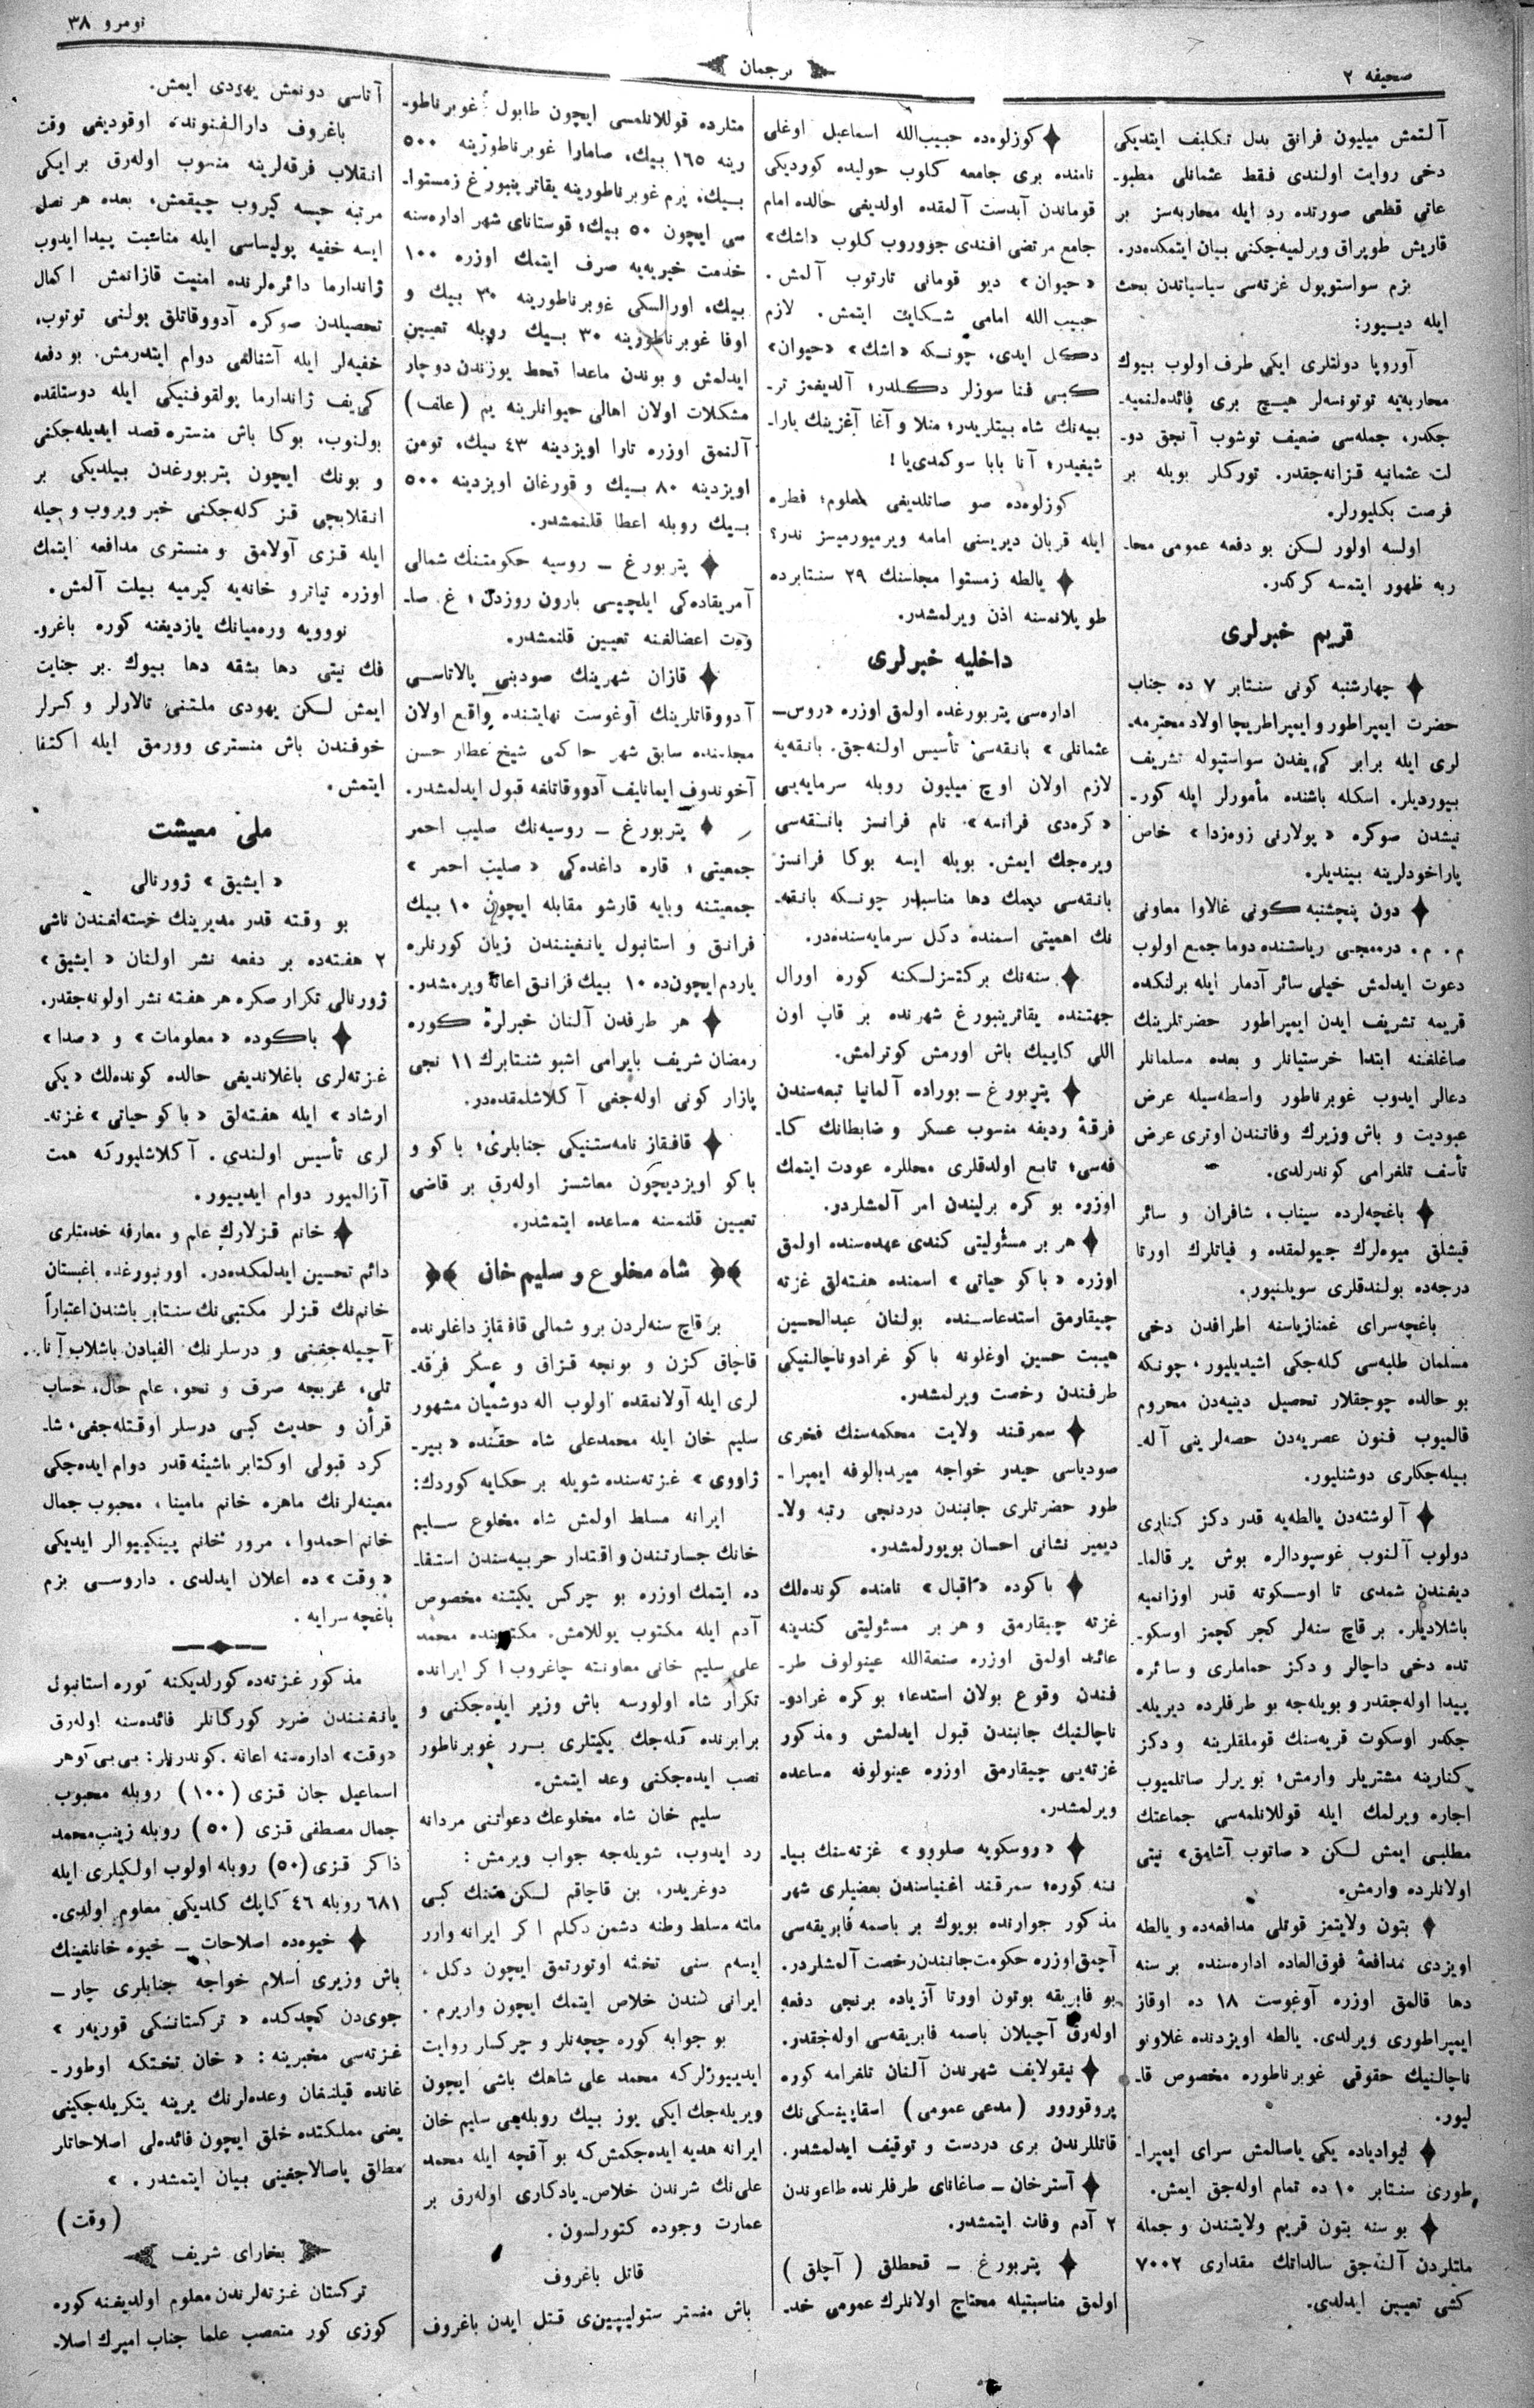 صحیفه ٢
ترجمان
نومرو ٣٨
آلتمش میلیون فرانق بدل تکلیف ایتدیکی
دخی روایت اولندی فقط عثمانلی مطبو-
عاتی قطعی صورتده رد ایله محاربه‌سز بر
قاریش طوپراق ویرلمیه‌جکنی بیان ایتمکده‌در.
بزم سواستوپول غزته‌سی سیاسیاتدن بحث
ایله دیـیور:
آوروپا دولتلری ایکی طرف اولوب بیوك
محاربه‌یه توتونسه‌لر هیـچ بری فائده‌لنمیه-
جکدر، جمله‌سی ضعیف توشوب آنجق دو-
لت عثمانیه قزانه‌جقدر. تورکلر بویله بر
فرصت بکلیورلر.
اولسه اولور لـکن بو دفعه عمومی محا-
ربه ظهور ایتمسه کرکدر.
قریم خبرلری
چهارشنبه کونی سنتابر ٧ ده جناب
حضرت ایمپراطور و ایمپراطریچا اولاد محترمه-
لری ایله برابر کی‌یفدن سواستپوله تشریف
بیوردیلر. اسکله باشنده مأمورلر ایله کور-
نیشدن صوکره «پولارنی زوه‌زدا» خاص
پاراخودلرینه بیندیلر.
دون پنچشنبه کـونی غالاوا معاونی
م. م. ریاستنده دوما جمع اولوب
دعوت ایدلمش خیلی سائر آدملر ایله برلنکده
قریمه تشریف ایدن ایمپراطور حضرتلرینك
صاغلغنه ابتدا خرستیانلر و بعده مسلمانلر
دعالر ایدوب غوبرناطور واسطه‌سیله عرض
عبودیت و باش وزیرك وفاتندن اوتری عرض
تأسف تلغرامی کوندرلدی.
باغچه‌لرده سیناب، شافران و سائر
قیشلق میوه‌لرك جیولمقده و فیاتلرك اورتا
درجه‌ده بولندقلری سویلنیور.
باغچه‌سرای غمنازیاسنه اطرافدن دخی
مسلمان طلبه‌سی کله‌جکی اشیدیلیور، چونکه
بو حالده چوجقلار تحصیل دینیه‌دن محروم
قالمیوب فنون عصریه‌دن حصه‌لرینی آله-
بیله‌جکلری دوشنلیور.
آلوشته‌دن یالطه‌یه قدر دکز کناری
دولوب آلنوب غوسپودالره بوش یر قالما-
دیغندن شمدی تا اوسـکوته قدر اوزانمیه
باشلادیلر. بر قاچ سنه‌لر کچر کچمز اوسکو-
تده دخی داچالر و دکز حماملری و سائره
پیدا اوله‌جقدر و بویله‌جه بو طرفلرده دیریله-
جکدر اوسکوت قریه‌سنك قوملقلرینه و دکز
کنارینه مشتریلر وارمش؛ بو یرلر صاتلمیوب
اجاره ویرلمك ایله قوللانلمه‌سی جماعتك
مطلبی ایمش لـکن «صاتوب آشامق» نیتی
اولانلرده وارمش.
بتون ولایتمز قوتلی مدافعه‌ده و یالطه
اویزدی مدافعهٔ فوق‌العاده اداره‌سنده بر سنه
دها قالمق اوزره آوغوست ١٨ ده اوقاز
ایمپراطوری ویرلدی. یالطه اویزدنده غلاونو
ناچالنیك حقوقی غوبرناطوره مخصوص قا-
لیور.
لیوادیاده یکی یاصالمش سرای ایمپرا-
طوری سنتابر ١٠ ده تمام اوله‌جق ایمش.
بو سنه بتون قریم ولایتندن و جمله
ملتلردن آلنه‌جق سالداتك مقداری ٧٠٠٢
کشی تعیین ایدلدی.
کوزلوه‌ده حبیب‌الله اسماعیل اوغلی
نامنده بری جامعه کلوب حولیده کوردیکی
قوماندن آبدست آلمقده اولدیغی حالده امام
جامع مرتضی افندی جووروب کلوب «اشك»
«حیوان» دیو قومانی تارتوب آلمش.
حبیب الله امامی شـکایت ایتمش. لازم
دکل ایدی، چونـکه «اشك» «حیوان»
کـبی فنا سوزلر دکـلدر؛ آلدیغمز تر-
بیه‌نك شاه بیتلریدر؛ منلا و آغا آغزینك یارا-
شیغیدر؛ آنا بابا سوکمدی‌یا!
کوزلوه‌ده صو صاتلدیغی معلوم؛ فطره
ایله قربان دیریسنی امامه ویرمیورمیسز ندر؟
یالطه زمستوا مجلسنك ٢٩ سنتابرده
طوپلانمسنه اذن ویرلمشدر.
داخلیه خبرلری
اداره‌سی پتربورغده اولمق اوزره «روس-
عثمانلی» بانقه‌سی تأسیس اولنه‌جق. بانقه‌یه
لازم اولان اوچ میلیون روبله سرمایه‌یی
«کره‌دی فرانسه» نام فرانسز بانقه‌سی
ویره‌جك ایمش. بویله ایسه بوکا فرانسز
بانقه‌سی دیمك دها مناسبدر چونـکه بانقه-
نك اهمیتی اسمنده دکل سرمایه‌سنده‌در.
سنه‌نك برکتمزلـکنه کوره اورال
جهتنده یقاترینبورغ شهرنده بر قاپ اون
اللی کاپیك باش اورمش کوترلمش.
پتربورغ – بوراده آلمانیا تبعه‌سندن
فرقهٔ ردیفه منسوب عسکر و ضابطانك کا-
فه‌سی؛ تابع اولدقلری محللره عودت ایتمك
اوزره بو کره برلیندن امر آلمشلردر.
هر بر مسئولیتی کندی عهده‌سنده اولمق
اوزره «باکو حیاتی» اسمنده هفته‌لق غزته
چیقارمق استدعاسنده بولنان عبدالحسین
هیبت حسین اوغلونه باکو غرادوناچالنیکی
طرفندن رخصت ویرلمشدر.
سمرقند ولایت محکمه‌سنك فخری
صودیاسی حیدر خواجه میربدالوفه ایمپرا-
طور حضرتلری جانبندن دردنجی رتبه ولا-
دیمیر نشانی احسان بویورلمشدر.
باکوده «اقبال» نامنده کونده‌لك
غزته چیقارمق و هر بر مسئولیتی کندینه
عائد اولمق اوزره صنعةالله عینولوف طر-
فندن وقوع بولان استدعا؛ بو کره غرادو-
ناچالنیك جانبندن قبول ایدلمش و مذکور
غزته‌یی چیقارمق اوزره عینولوفه مساعده
ویرلمشدر.
«روسکویه صلوو» غزته‌سنك بیا-
ننه کوره؛ سمرقند اغنیاسندن بعضیلری شهر
مذکور جوارنده بویوك بر باصمه فابریقه‌سی
آچمق اوزره حکومت جانبندن رخصت آلمشلردر.
بو فابریقه بوتون اورتا آزیاده برنجی دفعه
اوله‌رق آچیلان باصمه فابریقه‌سی اوله‌جقدر.
نیقولایف شهرندن آلنان تلغرامه کوره
پروقورور (مدعی عمومی) اسقاپینسکی‌نك
قاتللرندن بری دردست و توقیف ایدلمشدر.
آسترخان – صاغانای طرفلرنده طاعوندن
٢ آدم وفات ایتمشدر.
پتربورغ – قحطلق (آچلق)
اولمق مناسبتیله محتاج اولانلرك عمومی خد-
متلرده قوللانلمسی ایچون طابول غوبرناطو-
رینه ١٦٥ بیك، صامارا غوبرناطورینه ٥٠٠
بـیك، پرم غوبرناطورینه یقاترینبورغ زمستوا-
سی ایچون ٥٠ بیك؛ قوستانای شهر اداره‌سنه
خدمت خیریه‌یه صرف ایتمك اوزره ١٠٠
بیك، اورالسکی غوبرناطورینه ٣٠ بیك و
اوفا غوبرناطورینه ٣٠ بـیك روبله تعیین
ایدلمش و بوندن ماعدا قحط یوزندن دوچار
مشکلات اولان اهالی حیوانلرینه یم (علف)
آلنمق اوزره تارا اویزدینه ٤٣ بیك، تومن
اویزدینه ٨٠ بـیك و قورغان اویزدینه ٥٠٠
بـیك روبله اعطا قلنمشدر.
پتربورغ – روسیه حکومتنك شمالی
آمریقاده‌کی ایلچیسی بارون روزدن؛ غ. صا-
وه‌ت اعضالغنه تعیین قلنمشدر.
قازان شهرینك صودبنی پالاتاسی
آدووقاتلرینك آوغوست نهایتنده واقع اولان
مجلسنده سابق شهر حاکمی شیخ عطار حسن
آخوندوف ایمانایف آدووقاتلغه قبول ایدلمشدر.
پتربورغ – روسیه‌نك صلیب احمر
جمعیتی؛ قاره داغده‌کی «صلیب احمر»
جمعیتنه وبایه قارشو مقابله ایچون ١٠ بیك
فرانق و استانبول یانغینندن زیان کورنلره
یاردم ایچون‌ده ١٠ بیك فرانق اعانهٔ ویرمشدر.
هر طرفدن آلنان خبرلره کـوره
رمضان شریف بایرامی اشبو سنتابرك ١١ نجی
پازار کونی اوله‌جغی آکلاشلمقده‌در.
قافقاز نامه‌ستنیکی جنابلری؛ باکو و
باکو اویزدیچون معاشسز اوله‌رق بر قاضی
تعیین قلنمسنه مساعده ایتمشدر.
شاه مخلوع و سلیم خان
بر قاچ سنه‌لردن برو شمالی قافقاز داغلرنده
قاچاق کزن و بونجه قزاق و عسکر فرقه-
لری ایله آولانمقده اولوب اله دوشمیان مشهور
سلیم خان ایله محمدعلی شاه حقنده «بیر-
ژاووی» غزته‌سنده شویله بر حکایه کوردك:
ایرانه مسلط اولمش شاه مخلوع سـلیم
خانك جسارتندن و اقتدار حربیه‌سندن استفا-
ده ایتمك اوزره بو چرکس یکیتنه مخصوص
آدم ایله مکتوب یوللامش. مکتوبنده محمد
علی سلیم خانی معاونته چاغروب اکر ایرانده
تکرار شاه اولورسه باش وزیر ایده‌جکنی و
برابرنده کله‌جك یکیتلری بـرر غوبرناطور
نصب ایده‌جکنی وعد ایتمش.
سلیم خان شاه مخلوعك دعوتنی مردانه
رد ایدوب، شویله‌جه جواب ویرمش:
دوغریدر، بن قاچاقم لـکن سنك کبی
ملته مسلط وطنه دشمن دکلم اکر ایرانه وارر
ایسه‌م سنی تخته اوتورتمق ایچون دکل،
ایرانی سندن خلاص ایتمك ایچون واریرم.
بو جوابه کوره چچه‌نلر و چرکسلر روایت
ایدییورلرکه محمد علی شاهك باشی ایچون
ویریله‌جك ایکی یوز بیك روبله‌یی سلیم خان
ایرانه هدیه ایده‌جکمش که بو آقچه ایله محمد
علی‌نك شرندن خلاص یادکاری اوله‌رق بر
عمارت وجوده کتورلسون.
قاتل باغروف
باش منستر ستولیپین‌ی قتل ایدن باغروف
آتاسی دونمش یهودی ایمش.
باغروف دارالفنونده اوقودیغی وقت
انقلاب فرقه‌لرینه منسوب اوله‌رق بر ایکی
مرتبه حبسه کیروب چیقمش، بعده هر نصل
ایسه خفیه پولیساسی ایله مناسبت پیدا ایدوب
ژاندارما دائره‌لرنده امنیت قازانمش اکمال
تحصیلدن صوکره آدووقاتلق یولنی توتوب،
خفیه‌لر ایله آشنالغی دوام ایتدرمش. بو دفعه
کی‌یف ژاندارما پولقوفنیکی ایله دوستلقده
بولنوب، بوکا باش منستره قصد ایدیله‌جکنی
و بونك ایچون پتربورغدن بیلدیکی بر
انقلابچی قز کله‌جکنی خبر ویروب و حیله
ایله قزی آولامق و منستری مدافعه ایتمك
اوزره تیاترو خانه‌یه کیرمیه بیلت آلمش.
نوویه وره‌میانك یازدیغنه کوره باغرو-
فك نیتی دها بشقه دها بیوك بر جنایت
ایمش لـکن یهودی ملتنی تالاولر و کسرلر
خوفندن باش منستری وورمق ایله اکتفا
ایتمش.
ملی معیشت
«ایشیق» ژورنالی
بو وقته قدر مدیرینك خسته‌لغندن ناشی
٢ هفته‌ده بر دفعه نشر اولنان «ایشیق»
ژورنالی تکرار صکره هر هفته نشر اولونه‌جقدر.
باکـوده «معلومات» و «صدا»
غزته‌لری باغلاندیغی حالده کونده‌لك «یکی
ارشاد» ایله هفته‌لق «باکو حیاتی» غزته-
لری تأسیس اولندی. آکلاشلیورکه همت
آزالمیور دوام ایدییور.
خانم قزلارك علم و معارفه خدمتلری
دائم تحسین ایدلمکده‌در. اورنبورغده باغبستان
خانم‌نك قزلر مکتبی‌نك سنتابر باشندن اعتباراً
آچیله‌جغنی و درسلرنك الفبادن باشلاب آنا
تلی، عربچه صرف و نحو، علم حال، حساب
قرآن و حدیث کبی درسلر اوقتله‌جغی، شا-
کرد قبولی اوکتابر باشینه قدر دوام ایده‌جکی
معینه‌لرنك ماهره خانم مامینا، محبوب جمال
خانم احمدوا، مرور خانم پینکیپوالر ایدیکی
«وقت» ده اعلان ایدلدی. داروسـی بزم
باغچه سرایه.
مذکور غزته‌ده کورلدیکنه کوره استانبول
یانغنندن ضرر کورکانلر فائده‌سنه اوله‌رق
«وقت» اداره‌سنه اعانه کوندرنلر: بی بی کوهر
اسماعیل جان قزی (١٠٠) روبله محبوب
جمال مصطفی قزی (٥٠) روبله زینب محمد
ذاکر قزی (٥٠) روبله اولوب اولکیلری ایله
٦٨١ روبله ٤٦ کاپك کلدیکی معلوم اولدی.
خیوه‌ده اصلاحات – خیوه خانلغینك
باش وزیری اسلام خواجه جنابلری چار-
جوی‌دن کچدکده «ترکستانسکی قوریه‌ر»
غزته‌سی مخبرینه: «خان تختکه اوطور-
غانده قیلنغان وعده‌لرنك یرینه یتکریله‌جکینی
یعنی مملکتده خلق ایچون فائده‌لی اصلاحاتلر
مطلق یاصالاجغینی بیان ایتمشدر.»
(وقت)
بخارای شریف
ترکستان غزته‌لرندن معلوم اولدیغنه کوره
کوزی کور متعصب علما جناب امیرك اصلا-